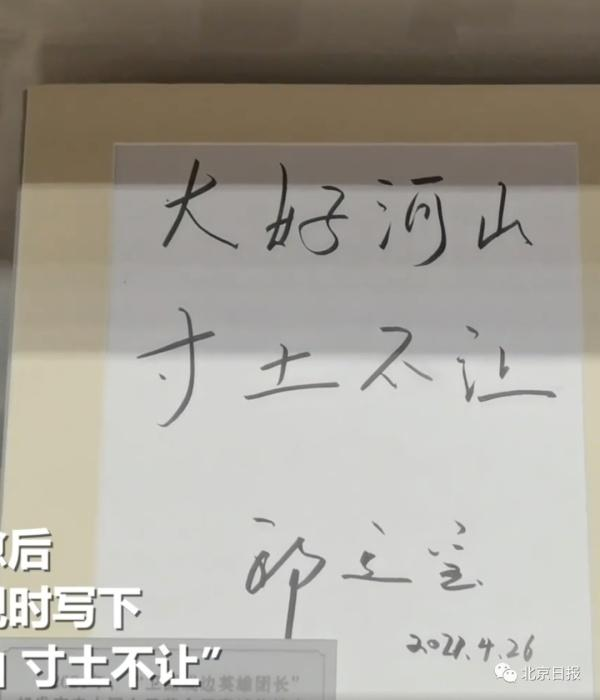 大好河山
寸土不让
祁发宝
2021.4.26
后
时写下
寸土不让”
边英雄团长”
北京日报